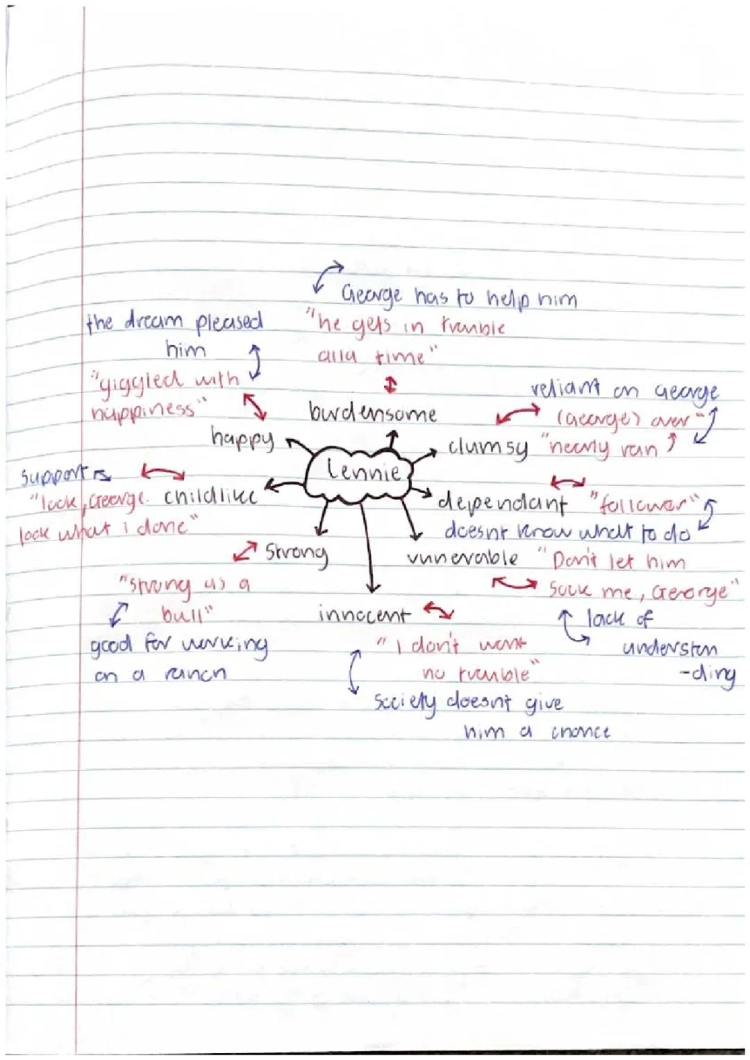 George has to help him
"he gets in trouble
alla time"
burdensome
the dream pleased
him
"giggled with
happiness"
happy
Lennie
reliant on George
(George) over"
clumsy "nearly ran
support
"look, George.
look what i done"
childlike
dependant "follower"
doesnt know what to do
strong
"strong as a
bull"
good for working
on a ranch
vunerable "Don't let him
sock me, George"
lack of
understan
-ding
innocent
"I don't want
no trouble"
society doesnt give
him a chance